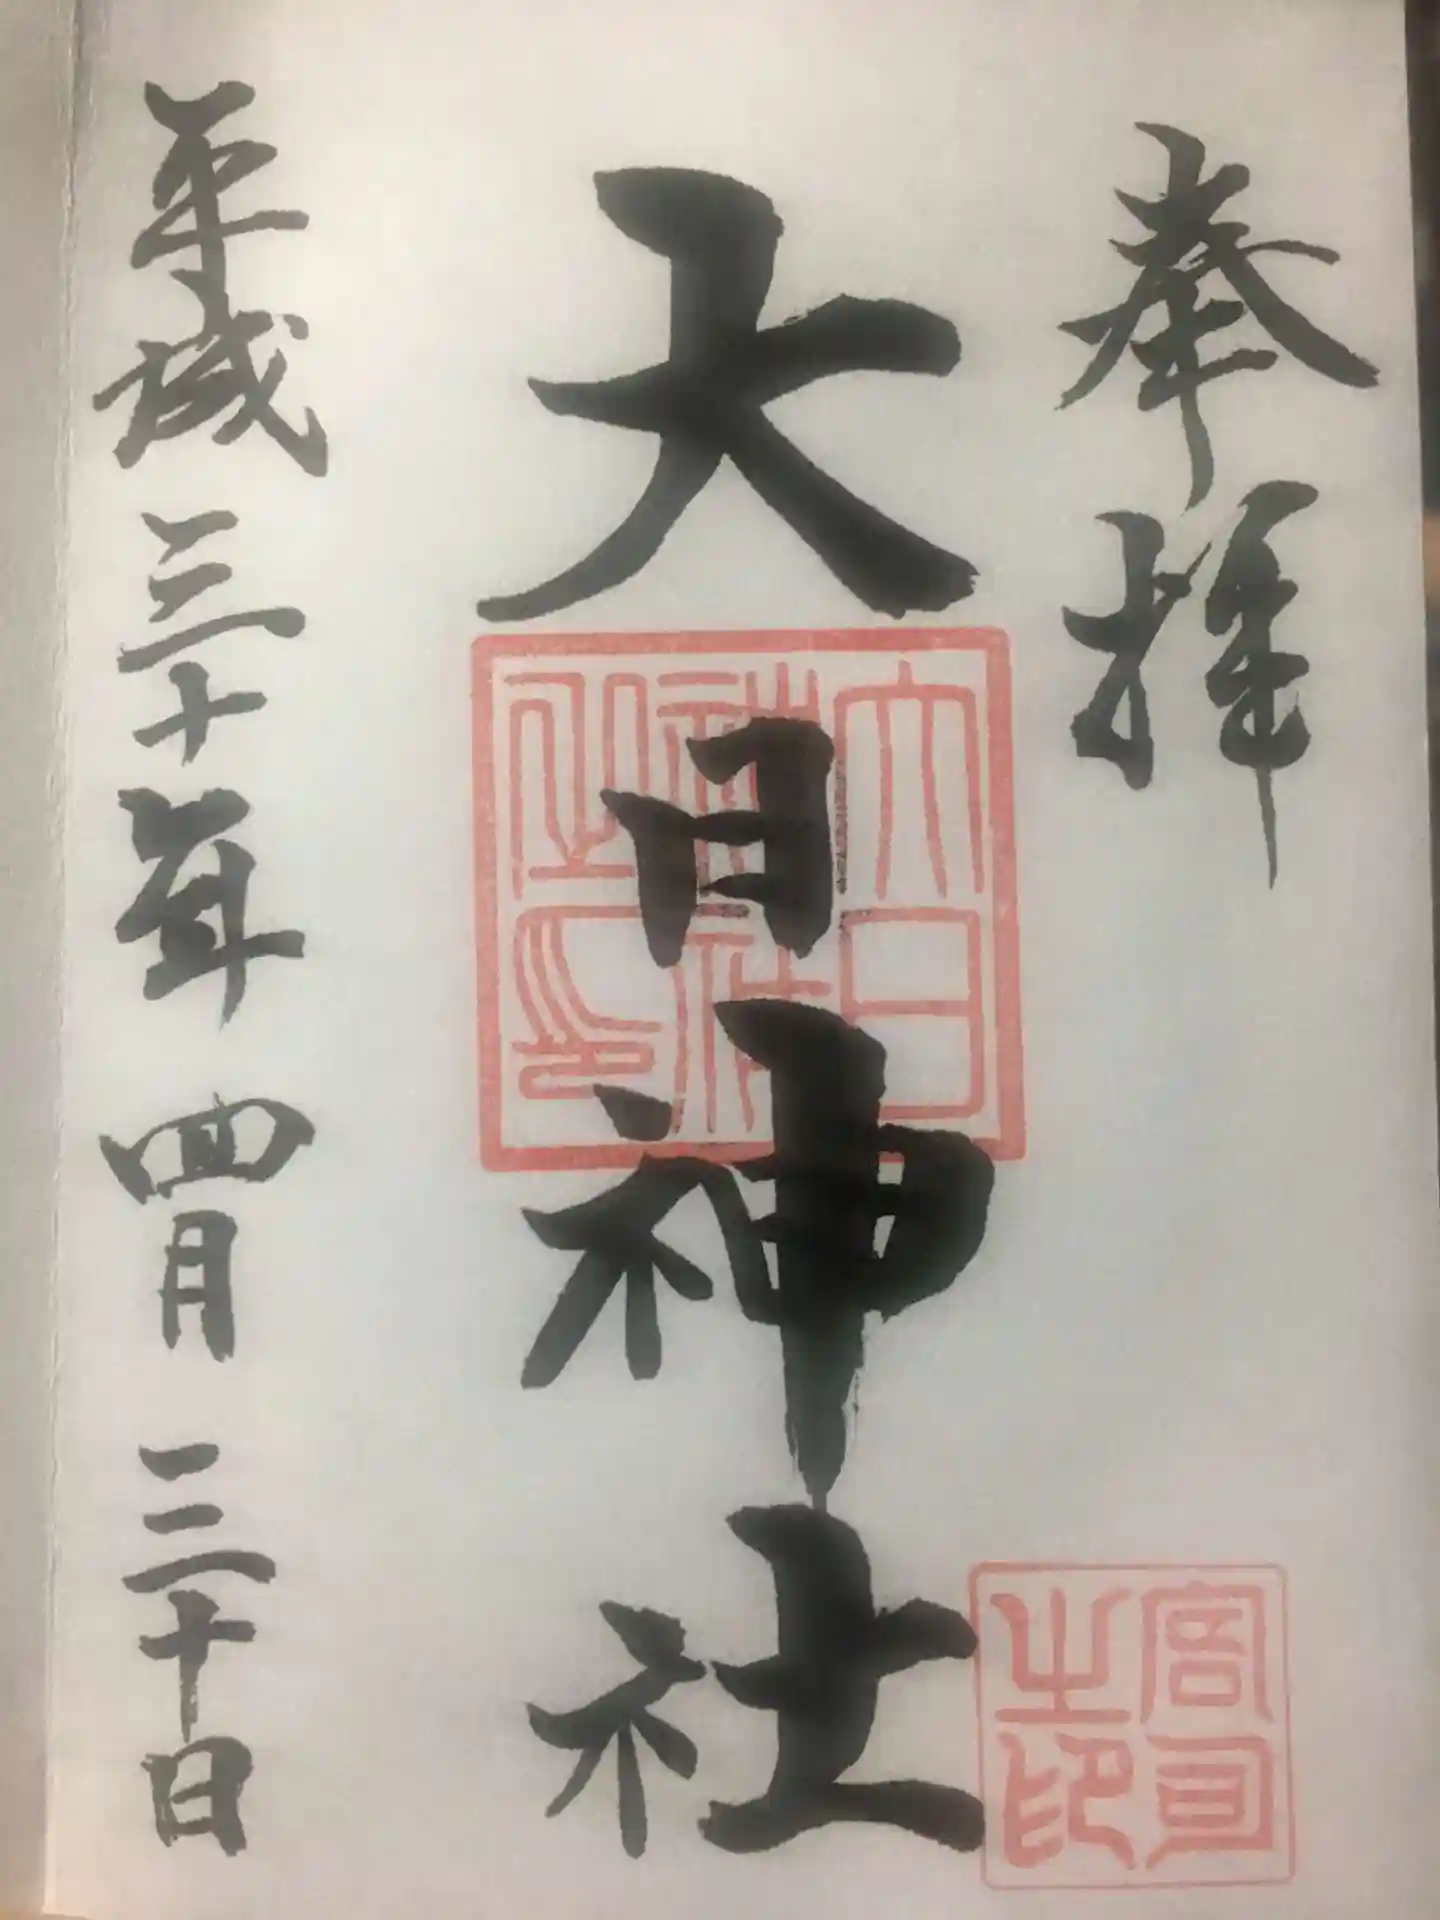 奉拝
大日神社
大日神社之印
宮司之印
平成三十年四月三十日